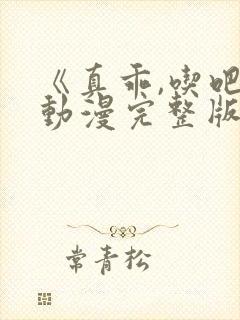 《真乖,喫吧
動漫完整版
常青松